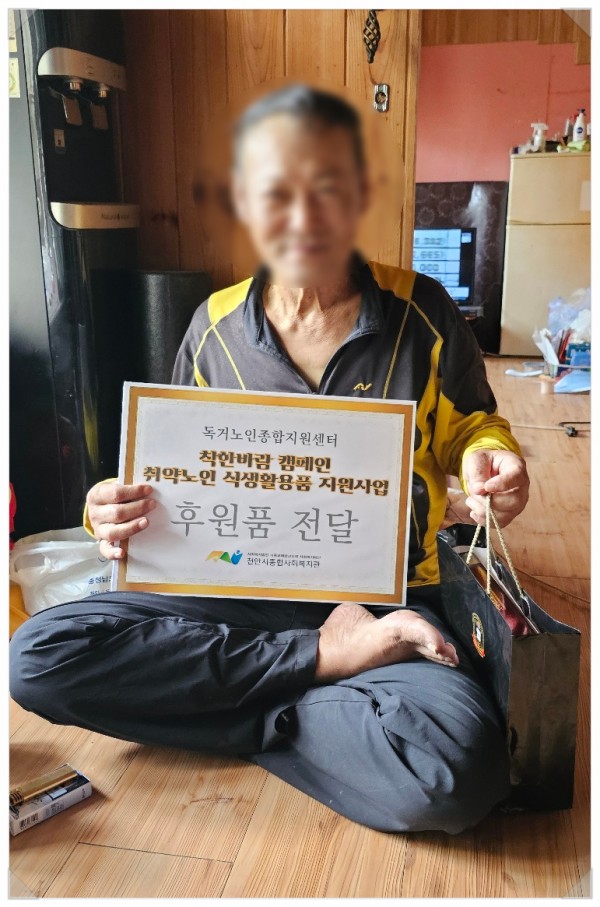 독거노인종합지원센터
착한바람 캠페인
취약노인 식생활용품 지원사업
후원품 전달
천안시종합사회복지관